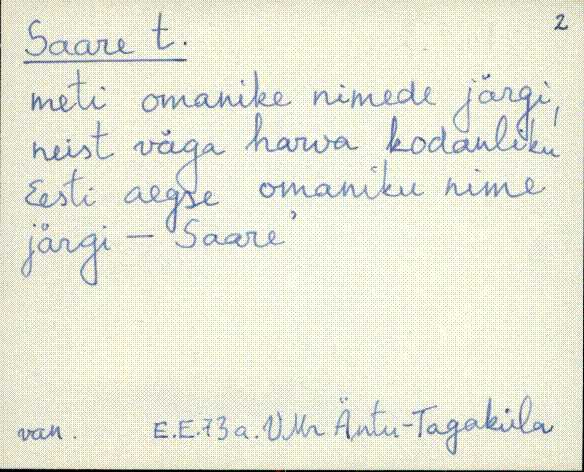 2
Saare t.
meti omanike nimede järgi,
neist väga harva kodanliku
Eesti aegse omaniku nime
järgi – Saare'
van. E.E.73 a. VMr Äntu-Tagaküla